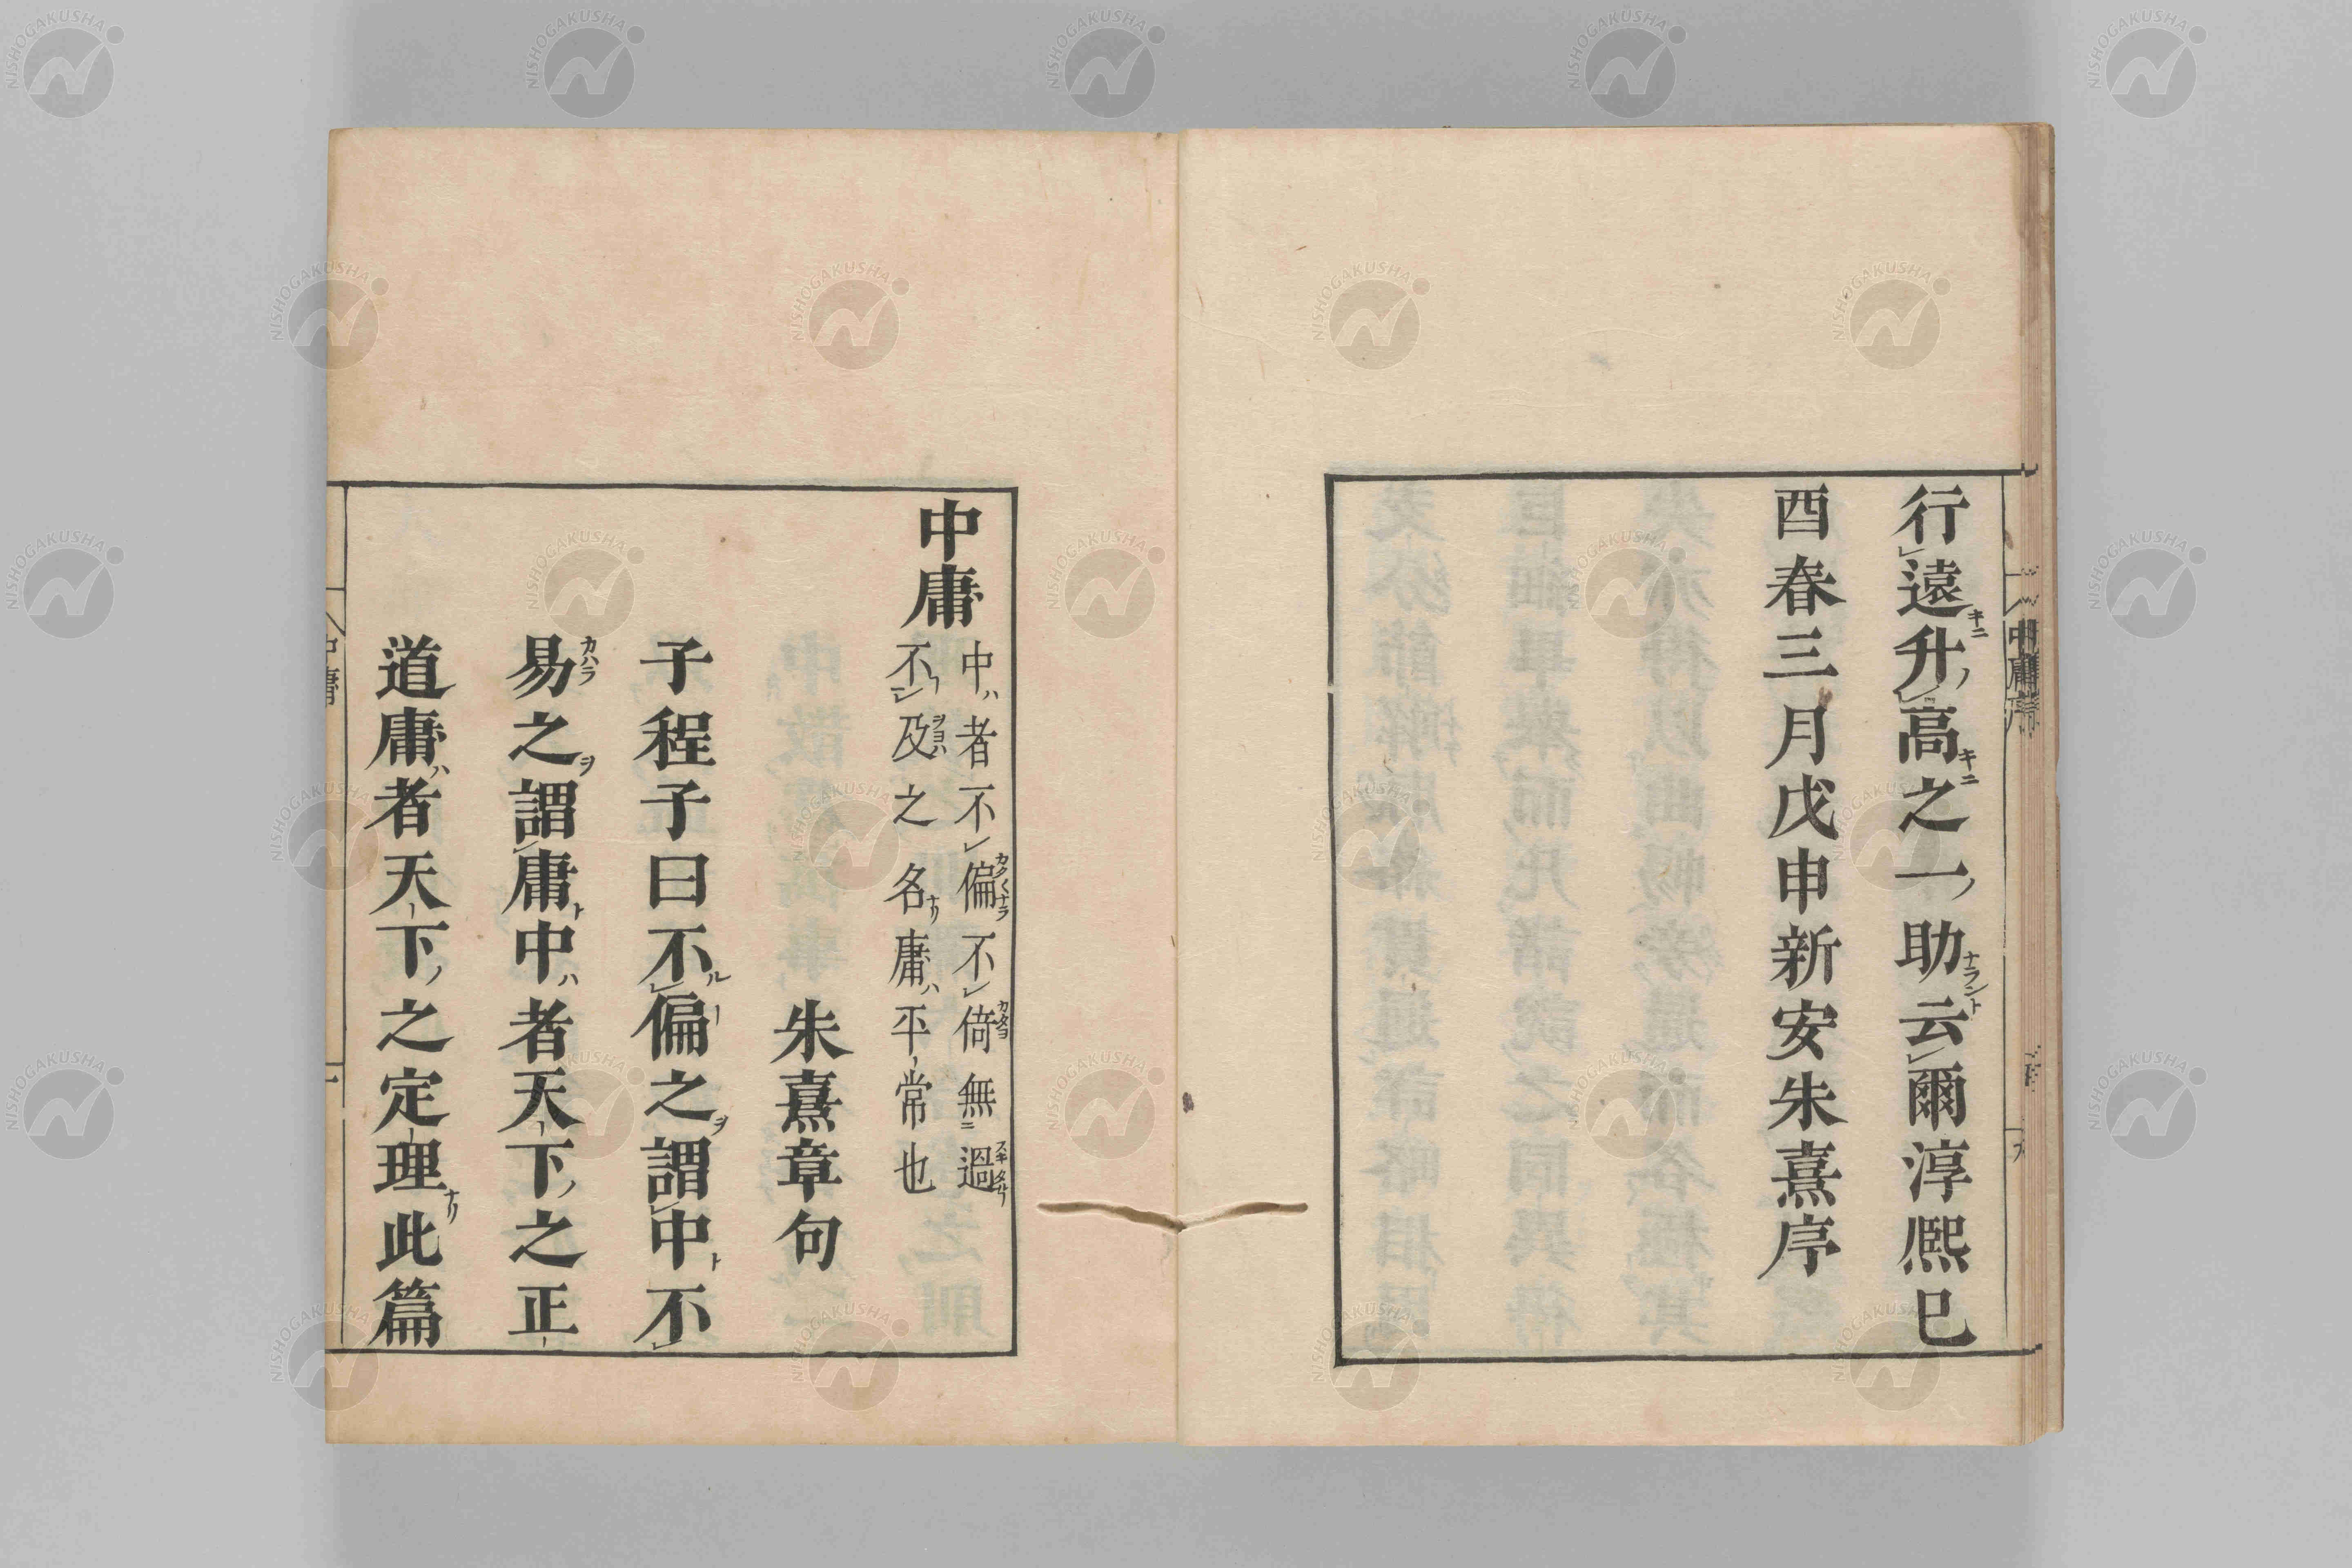 中庸序
行遠升高之一助云爾淳熙巳
酉春三月戊申新安朱熹序
中庸
中者不偏不倚無過
不及之名庸平常也
朱熹章句
子程子曰不偏之謂中不
易之謂庸中者天下之正
道庸者天下之定理此篇
中庸
一
NISHOGAKUSHA